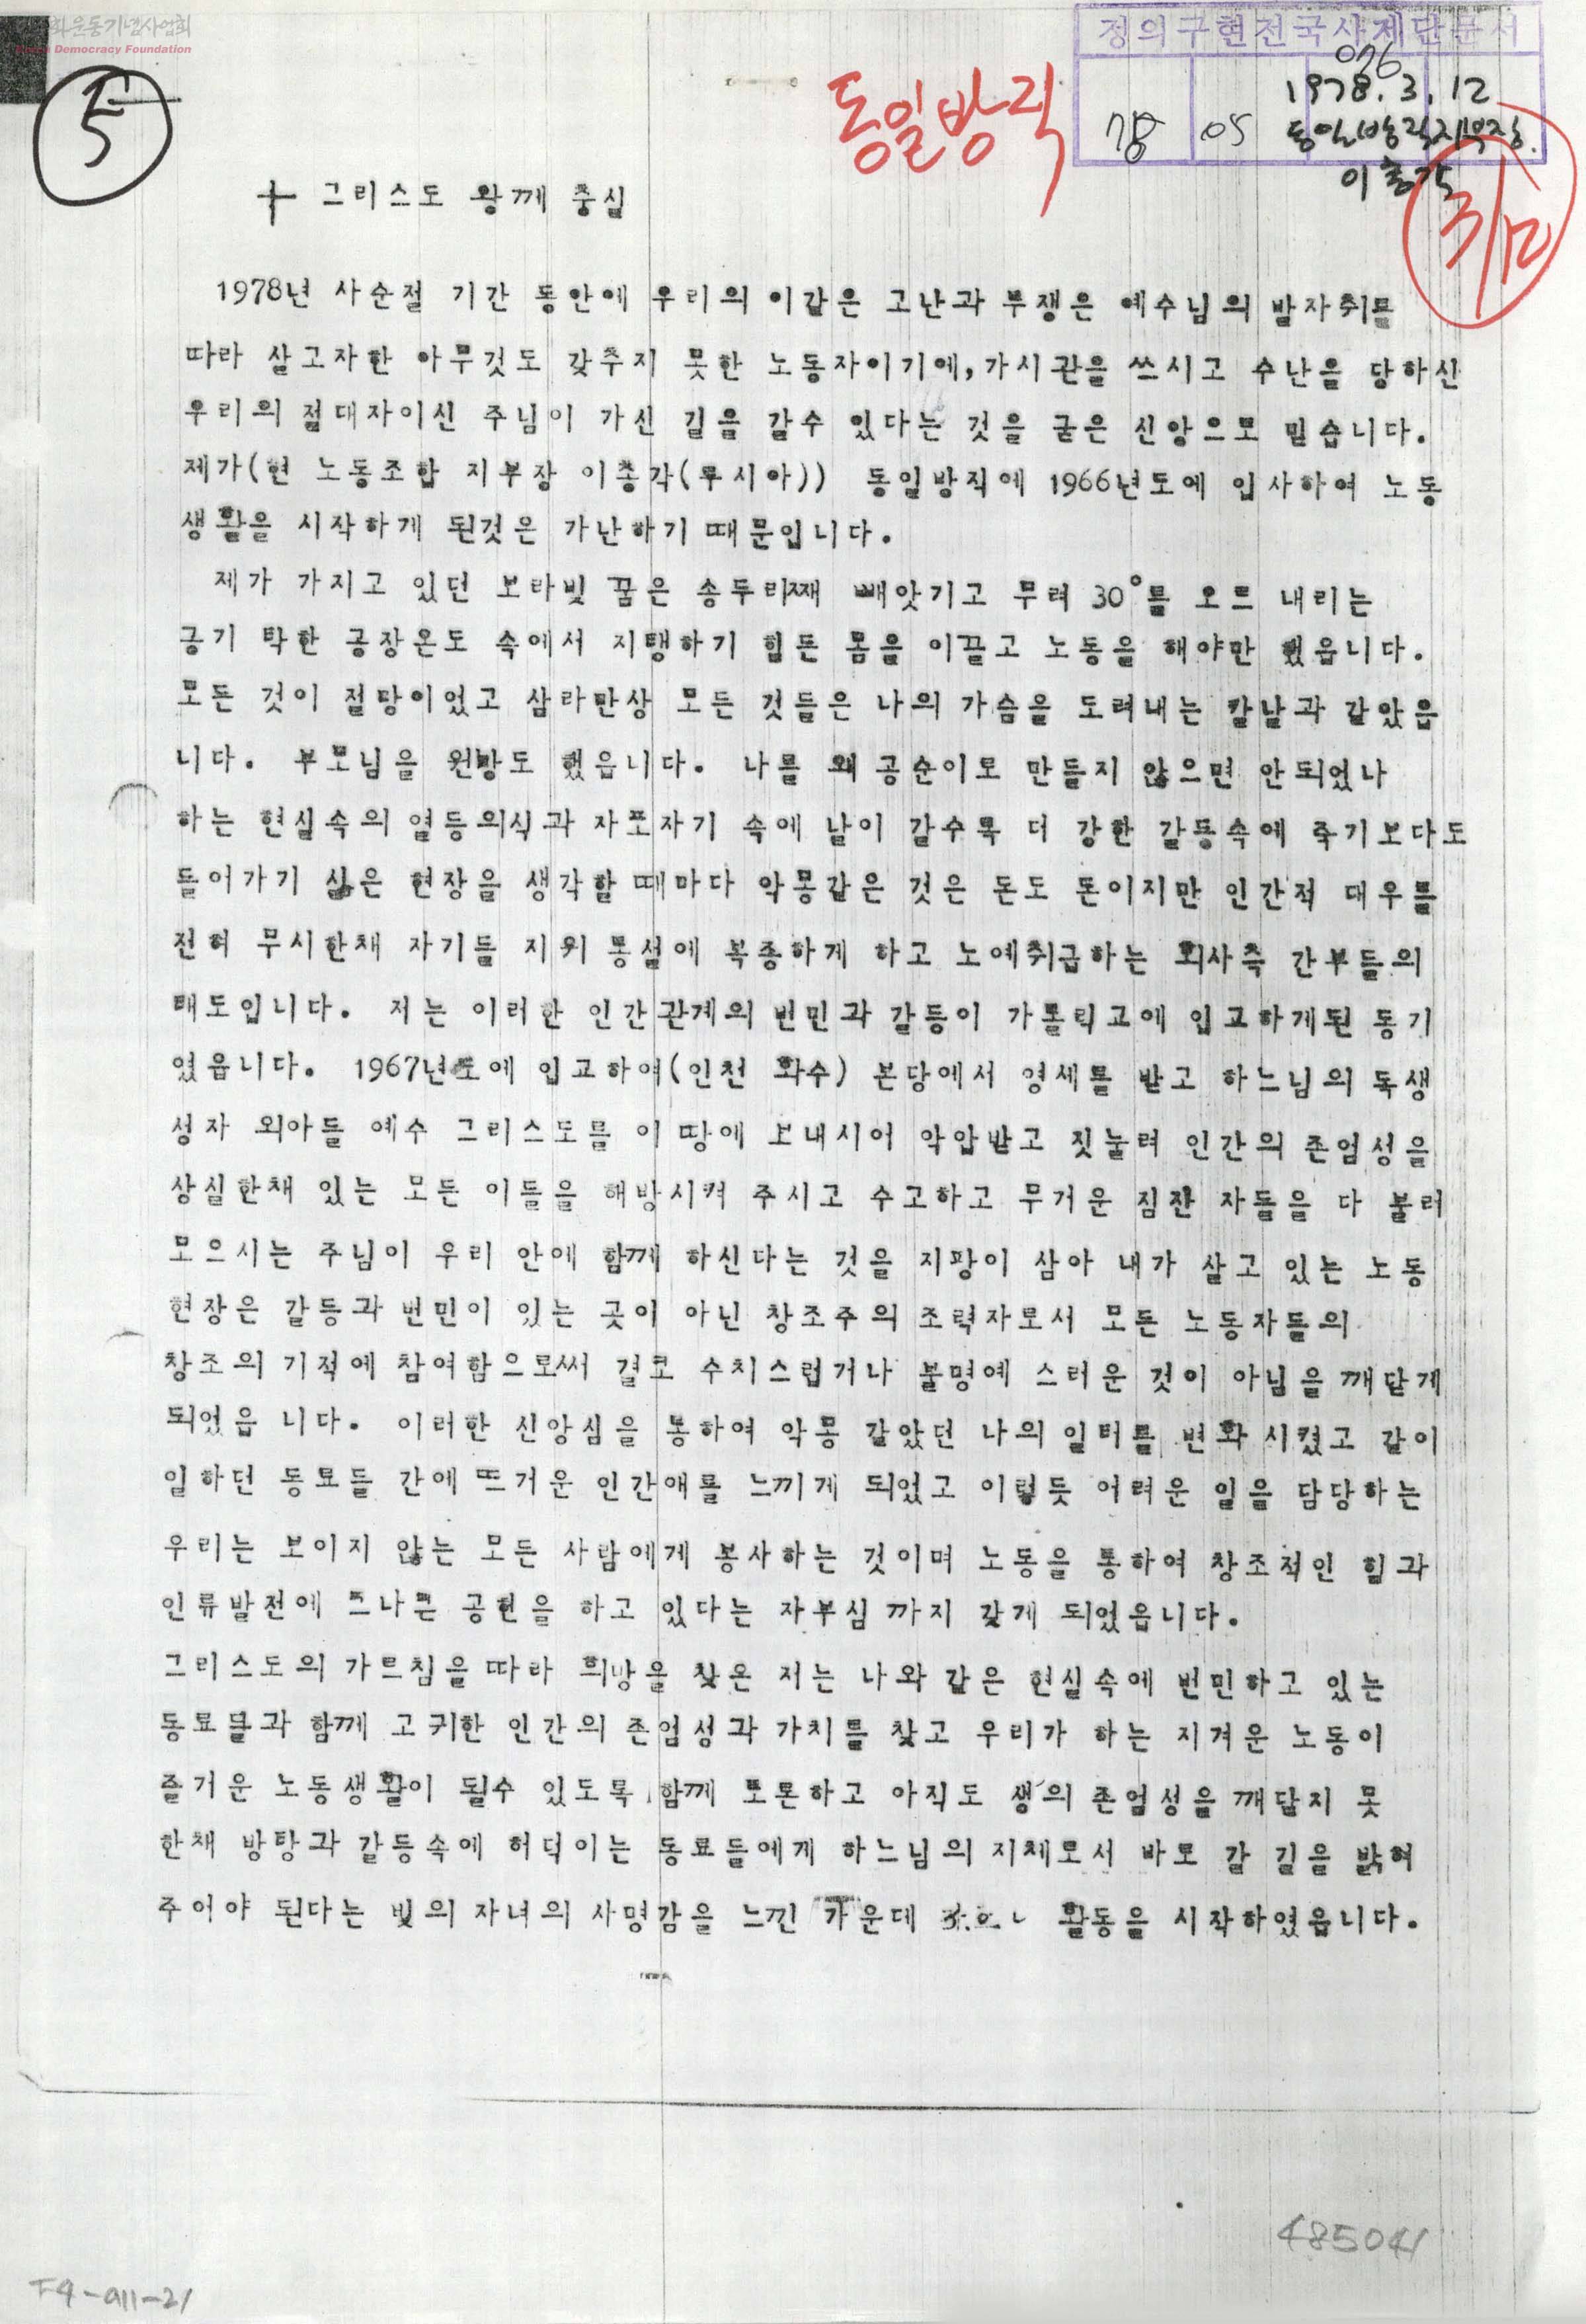 화운동기념사업회
Democracy Foundation
정의구현전국사제단문서
5
동일방직
076
1978. 3. 12
78 05
동일방직지부장
이총각
3/12
+ 그리스도 왕께 충심
1978년 사순절 기간 동안에 우리의 이같은 고난과 투쟁은 예수님의 발자취를
따라 살고자한 아무것도 갖추지 못한 노동자이기에, 가시관을 쓰시고 수난을 당하신
우리의 절대자이신 주님이 가신 길을 갈수 있다는 것을 굳은 신앙으로 믿습니다.
제가(현 노동조합 지부장 이총각(루시아)) 동일방직에 1966년도에 입사하여 노동
생활을 시작하게 된것은 가난하기 때문입니다.
제가 가지고 있던 보라빛 꿈은 송두리째 빼앗기고 무려 30°를 오르 내리는
공기 탁한 공장온도 속에서 지탱하기 힘든 몸을 이끌고 노동을 해야만 했읍니다.
모든 것이 절망이었고 삼라만상 모든 것들은 나의 가슴을 도려내는 칼날과 같았읍
니다. 부모님을 원망도 했읍니다. 나를 왜 공순이로 만들지 않으면 안되었나
하는 현실속의 열등의식과 자포자기 속에 날이 갈수록 더 강한 갈등속에 죽기보다도
들어가기 싫은 현장을 생각할 때마다 악몽같은 것은 돈도 돈이지만 인간적 대우를
전혀 무시한채 자기들 지위 통설에 복종하게 하고 노예취급하는 회사측 간부들의
태도입니다. 저는 이러한 인간관계의 번민과 갈등이 가톨릭교에 입교하게된 동기
였읍니다. 1967년도에 입교하여(인천 화수) 본당에서 영세를 받고 하느님의 독생
성자 외아들 예수 그리스도를 이 땅에 보내시어 악압받고 짓눌려 인간의 존엄성을
상실한채 있는 모든 이들을 해방시켜 주시고 수고하고 무거운 짐진 자들을 다 불러
모으시는 주님이 우리 안에 함께 하신다는 것을 지팡이 삼아 내가 살고 있는 노동
현장은 갈등과 번민이 있는 곳이 아닌 창조주의 조력자로서 모든 노동자들의
창조의 기적에 참여함으로써 결코 수치스럽거나 불명예 스러운 것이 아님을 깨닫게
되었읍 니다. 이러한 신앙심을 통하여 악몽 같았던 나의 일터를 변화 시켰고 같이
일하던 동료들 간에 뜨거운 인간애를 느끼게 되었고 이렇듯 어려운 일을 담당하는
우리는 보이지 않는 모든 사람에게 봉사하는 것이며 노동을 통하여 창조적인 힘과
인류발전에 크나큰 공헌을 하고 있다는 자부심 까지 갖게 되었읍니다.
그리스도의 가르침을 따라 희망을 찾은 저는 나와 같은 현실속에 번민하고 있는
동료들과 함께 고귀한 인간의 존엄성과 가치를 찾고 우리가 하는 지겨운 노동이
즐거운 노동생활이 될수 있도록 함께 토론하고 아직도 생의 존엄성을 깨닫지 못
한채 방탕과 갈등속에 허덕이는 동료들에게 하느님의 지체로서 바로 갈 길을 밝혀
주어야 된다는 빛의 자녀의 사명감을 느낀 가운데 활동을 시작하였읍니다.
485041
F4-911-21